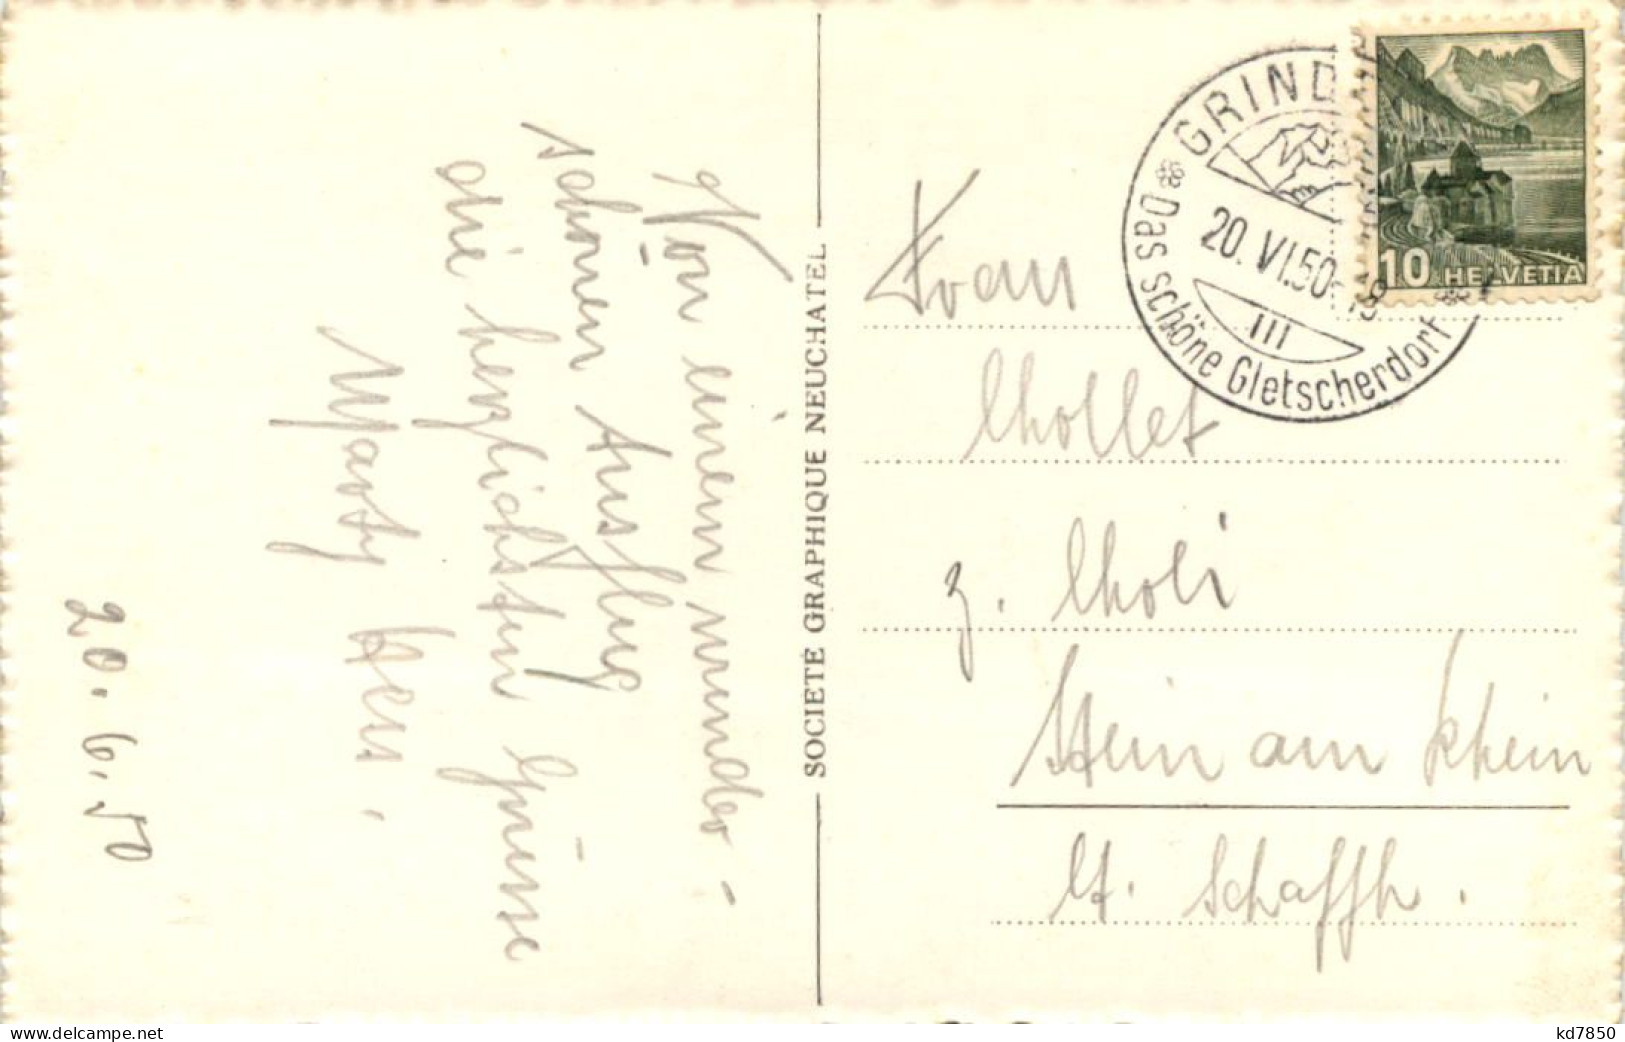 Von einem wunder-
schönen Ausflug
die herzlichsten Grüsse
Marty Hess.
20.6.50
SOCIETE GRAPHIQUE NEUCHATEL
GRIND
20.VI.50-18
III
Das schöne Gletscherdorf
10 HELVETIA
Frau
Chollet
z. Choli
Stein am Rhein
Ct. Schaffh.
www.delcampe.net
kd7850